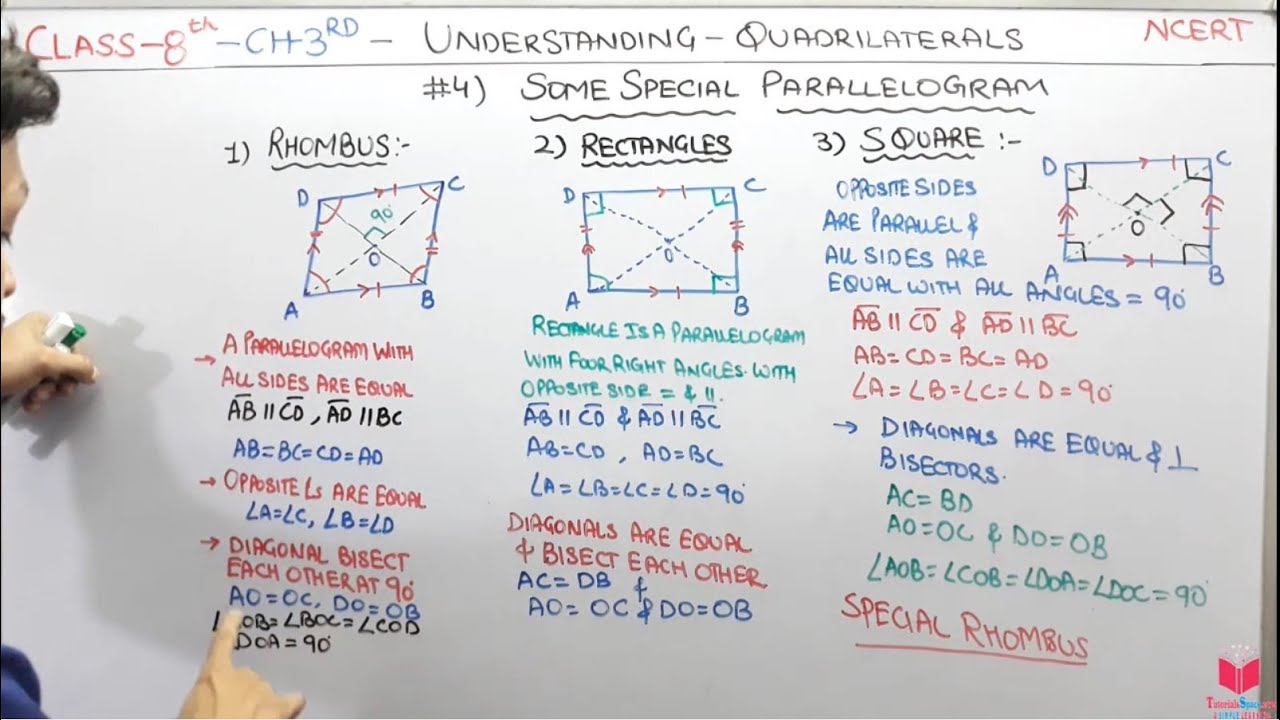 CLASS-8th-CH3RD- UNDERSTANDING-QUADRILATERALS NCERT
#4) SOME SPECIAL PARALLELOGRAM
1) RHOMBUS:-
D C
90°
O
A B
→ A PARALLELOGRAM WITH
ALL SIDES ARE EQUAL
AB || CD , AD || BC
AB=BC=CD=AD
→ OPPOSITE ∠s ARE EQUAL
∠A=∠C, ∠B=∠D
→ DIAGONAL BISECT
EACH OTHER AT 90°
AO=OC, DO=OB
OB=∠BOC=∠COD
DOA=90°
2) RECTANGLES
D C
O
A B
RECTANGLE IS A PARALLELOGRAM
WITH FOUR RIGHT ANGLES. WITH
OPPOSITE SIDE = & ||.
AB || CD & AD || BC
AB=CD , AD=BC
∠A=∠B=∠C=∠D=90°
DIAGONALS ARE EQUAL
& BISECT EACH OTHER
AC=DB &
AO=OC & DO=OB
3) SQUARE :-
D C
O
A B
OPPOSITE SIDES
ARE PARALLEL &
ALL SIDES ARE
EQUAL WITH ALL ANGLES = 90°
AB || CD & AD || BC
AB=CD=BC=AD
∠A=∠B=∠C=∠D=90°
→ DIAGONALS ARE EQUAL & ⊥
BISECTORS.
AC=BD
AO=OC & DO=OB
∠AOB=∠COB=∠DOA=∠DOC=90°
SPECIAL RHOMBUS